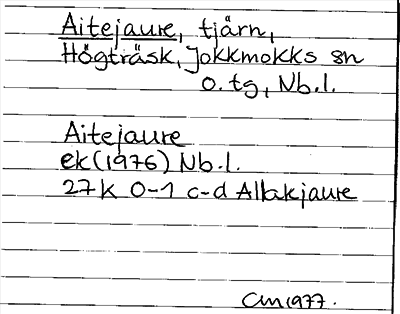 Aitejaure, tjärn,
Högträsk, Jokkmokks sn
o. tg, Nb.l.
Aitejaure
ek (1976) Nb.l.
27k 0-1 c-d Allakjaure
CM 1977.